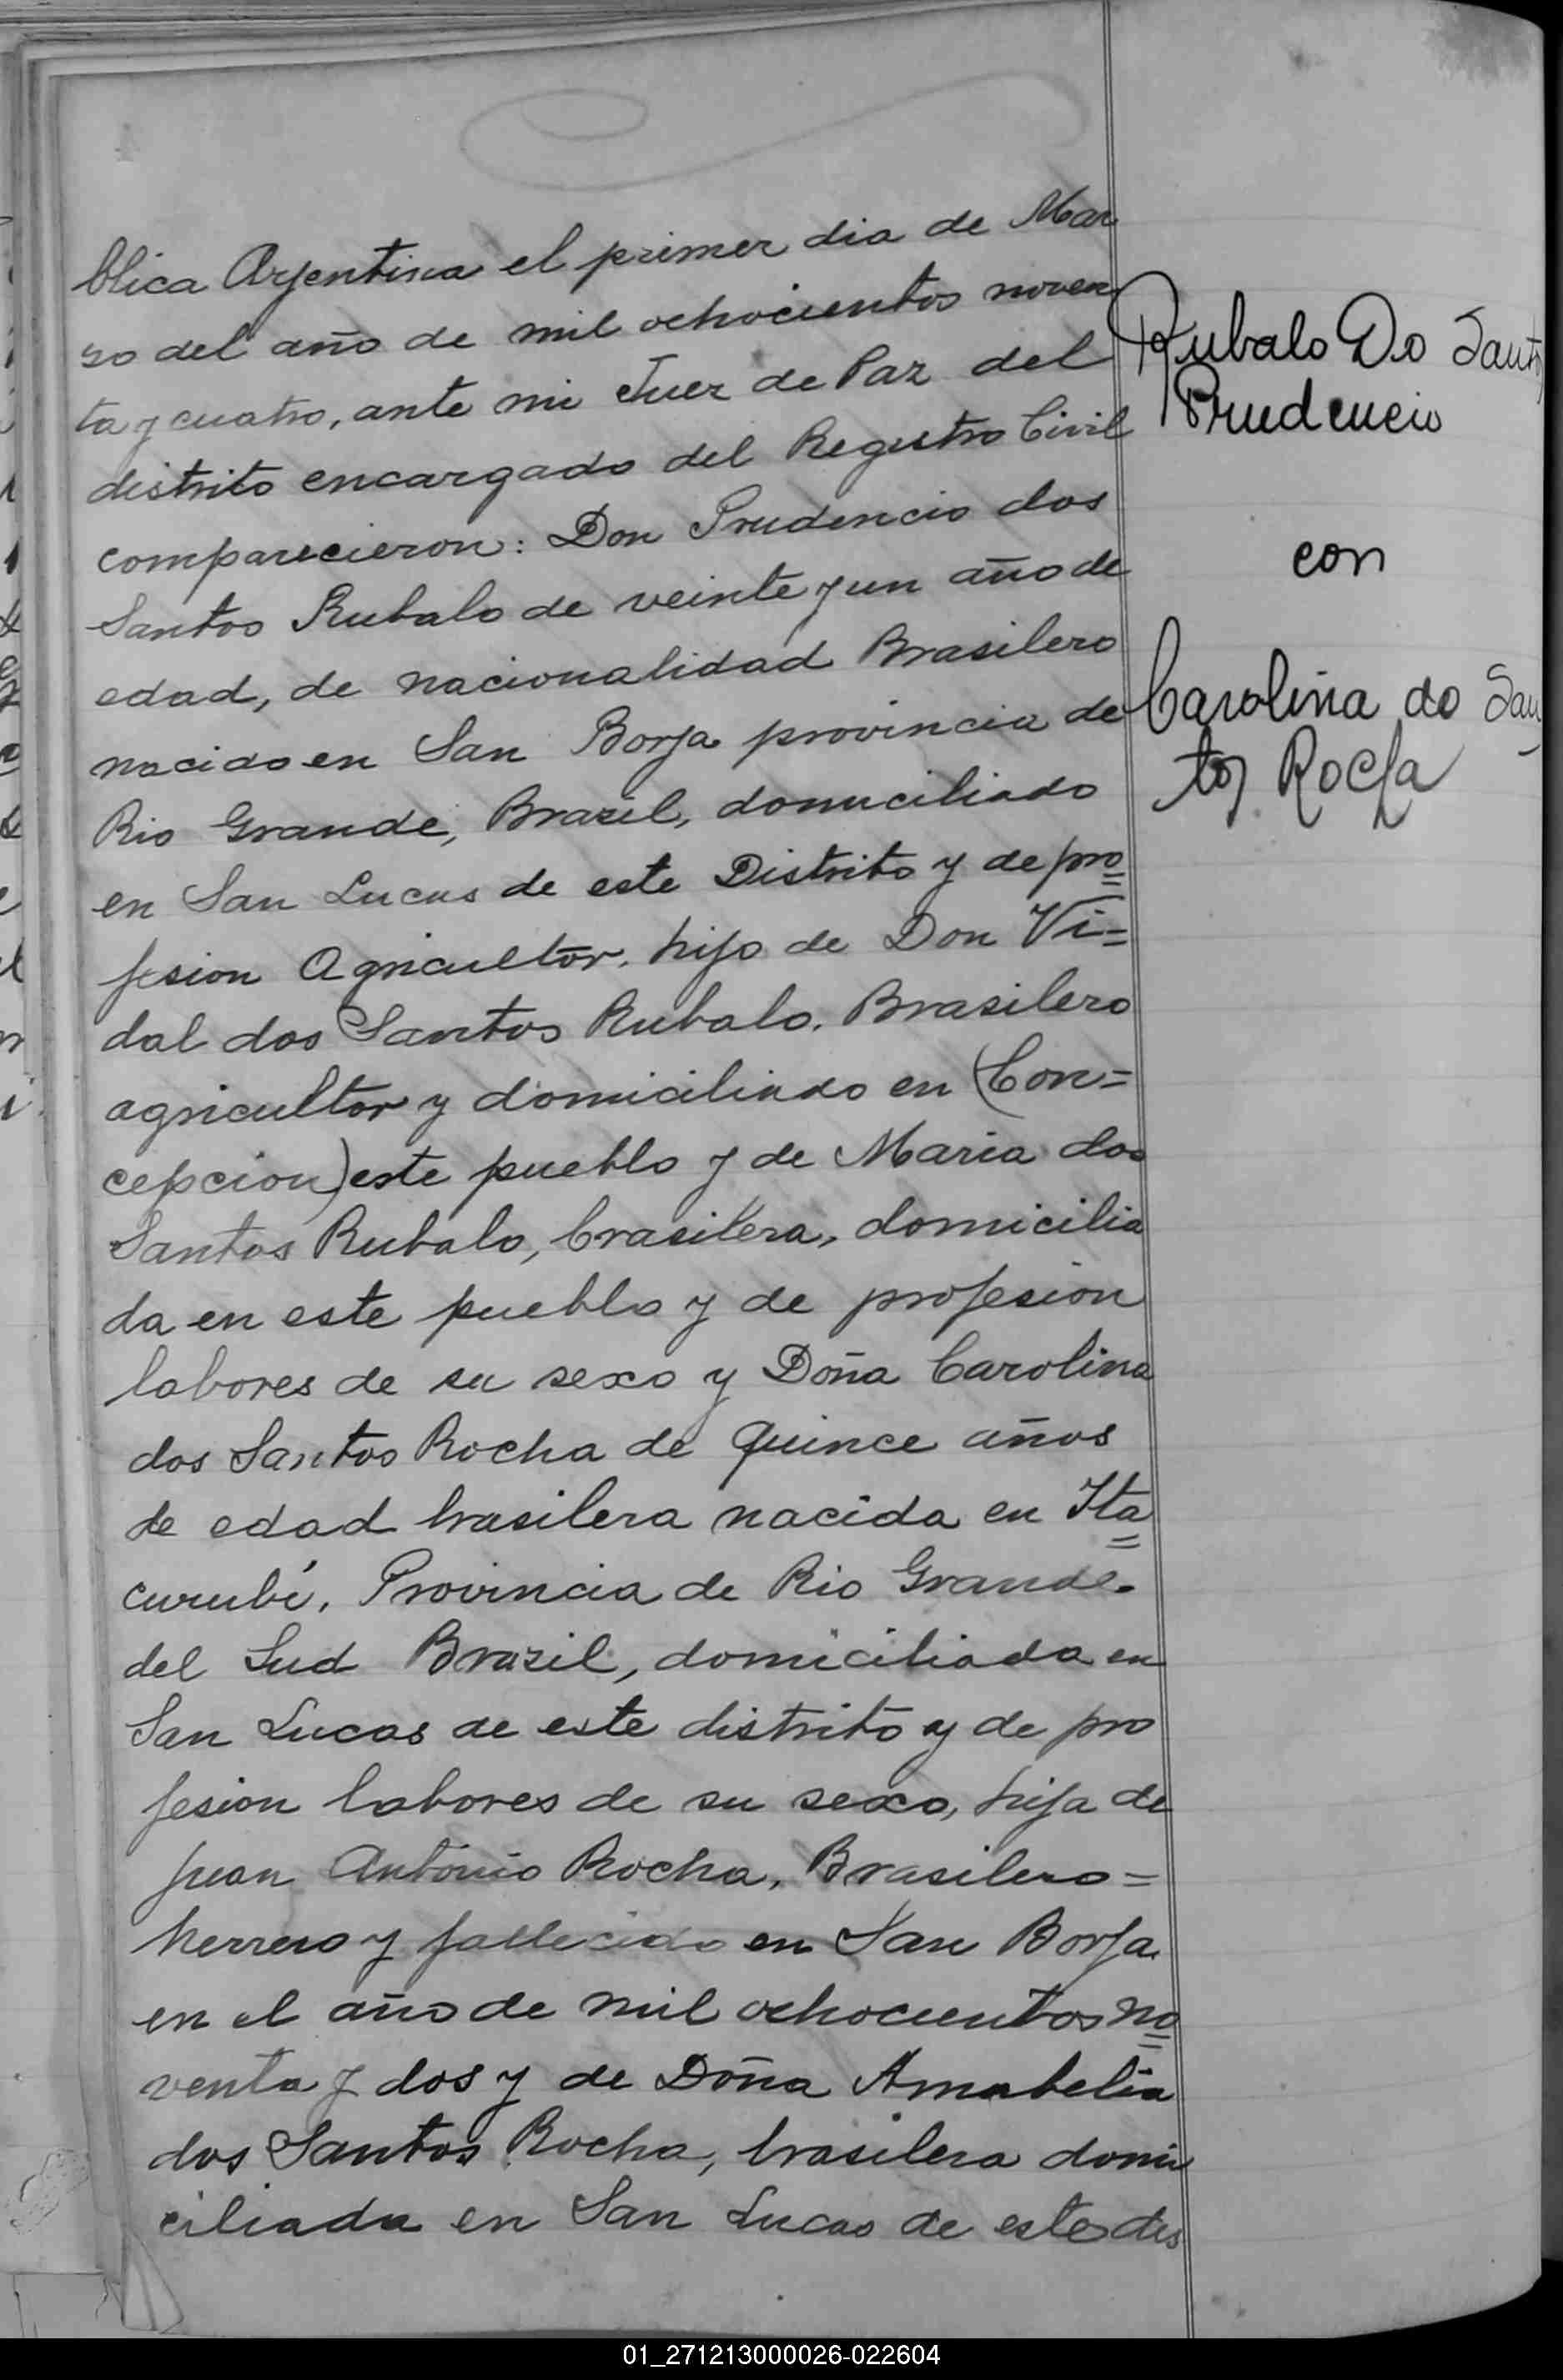 blica Argentina el primer dia de Mar
zo del año de mil ochocientos noven
ta y cuatro, ante mi Juez de Paz del
distrito encargado del Registro Civil
comparecieron: Don Prudencio dos
Santos Rubalo de veinte y un año de
edad, de nacionalidad Brasilero
nacido en San Borja provincia de
Rio Grande, Brazil, domiciliado
en San Lucas de este Distrito y de pro=
fesion Agricultor, hijo de Don Vi=
dal dos Santos Rubalo, Brasilero
agricultor y domiciliado en (Con=
cepcion) este pueblo y de Maria dos
Santos Rubalo, brasilera, domicilia
da en este pueblo y de profesion
labores de su sexo y Doña Carolina
dos Santos Rocha de quince años
de edad brasilera nacida en Ita=
curubí, Provincia de Rio Grande
del Sud Brazil, domiciliada en
San Lucas de este distrito y de pro
fesion labores de su sexo, hija de
Juan Antonio Rocha, Brasilero=
herrero y fallecido en San Borja
en el año de mil ochocientos no=
venta y dos y de Doña Amabelia
dos Santos Rocha, brasilera domi
ciliada en San Lucas de este dis
Rubalo Do Santos
Prudencio
con
Carolina do San
tos Rocha
01_271213000026-022604